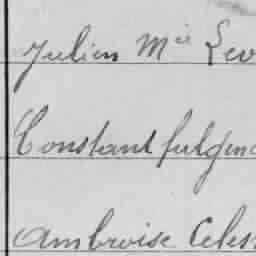 Julien Mie Lev
Constant fulgenc
Ambroise Celes